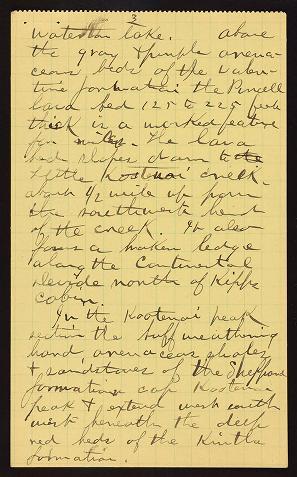 3
Waterton lake. above
the gray & purple arena-
ceous beds of the
formation the Purcell
lava bed 125 to 225 feet
thick is a marked feature
for miles. The lava
bed slopes down to the
Little Kootnai creek
about 1/2 mile up from
the southwest bend
of the creek. It also
forms a broken ledge
along the Continental
divide north of Kipps
cabin.
In the Kootenai peak
section the buff weathering
hard, arenaceous shales
& sandstones of the Sheppard
formation cap Kootenai
peak & extend west south
west beneath the deep
red beds of the Kintla
formation.